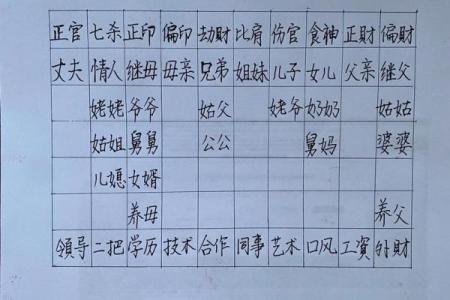 正官 七杀 正印 偏印 劫财 比肩 伤官 食神 正財 偏財
丈夫 情人 继母 母亲 兄弟 姐妹 儿子 女儿 父亲 继父
姥姥 爷爷 姑父 姥爷 奶奶 姑姑
姑姐 舅舅 公公 舅妈 婆婆
儿媳 女婿
养母 养父
領导 二把 学历 技术 合作 同事 艺术 口风 工資 外財